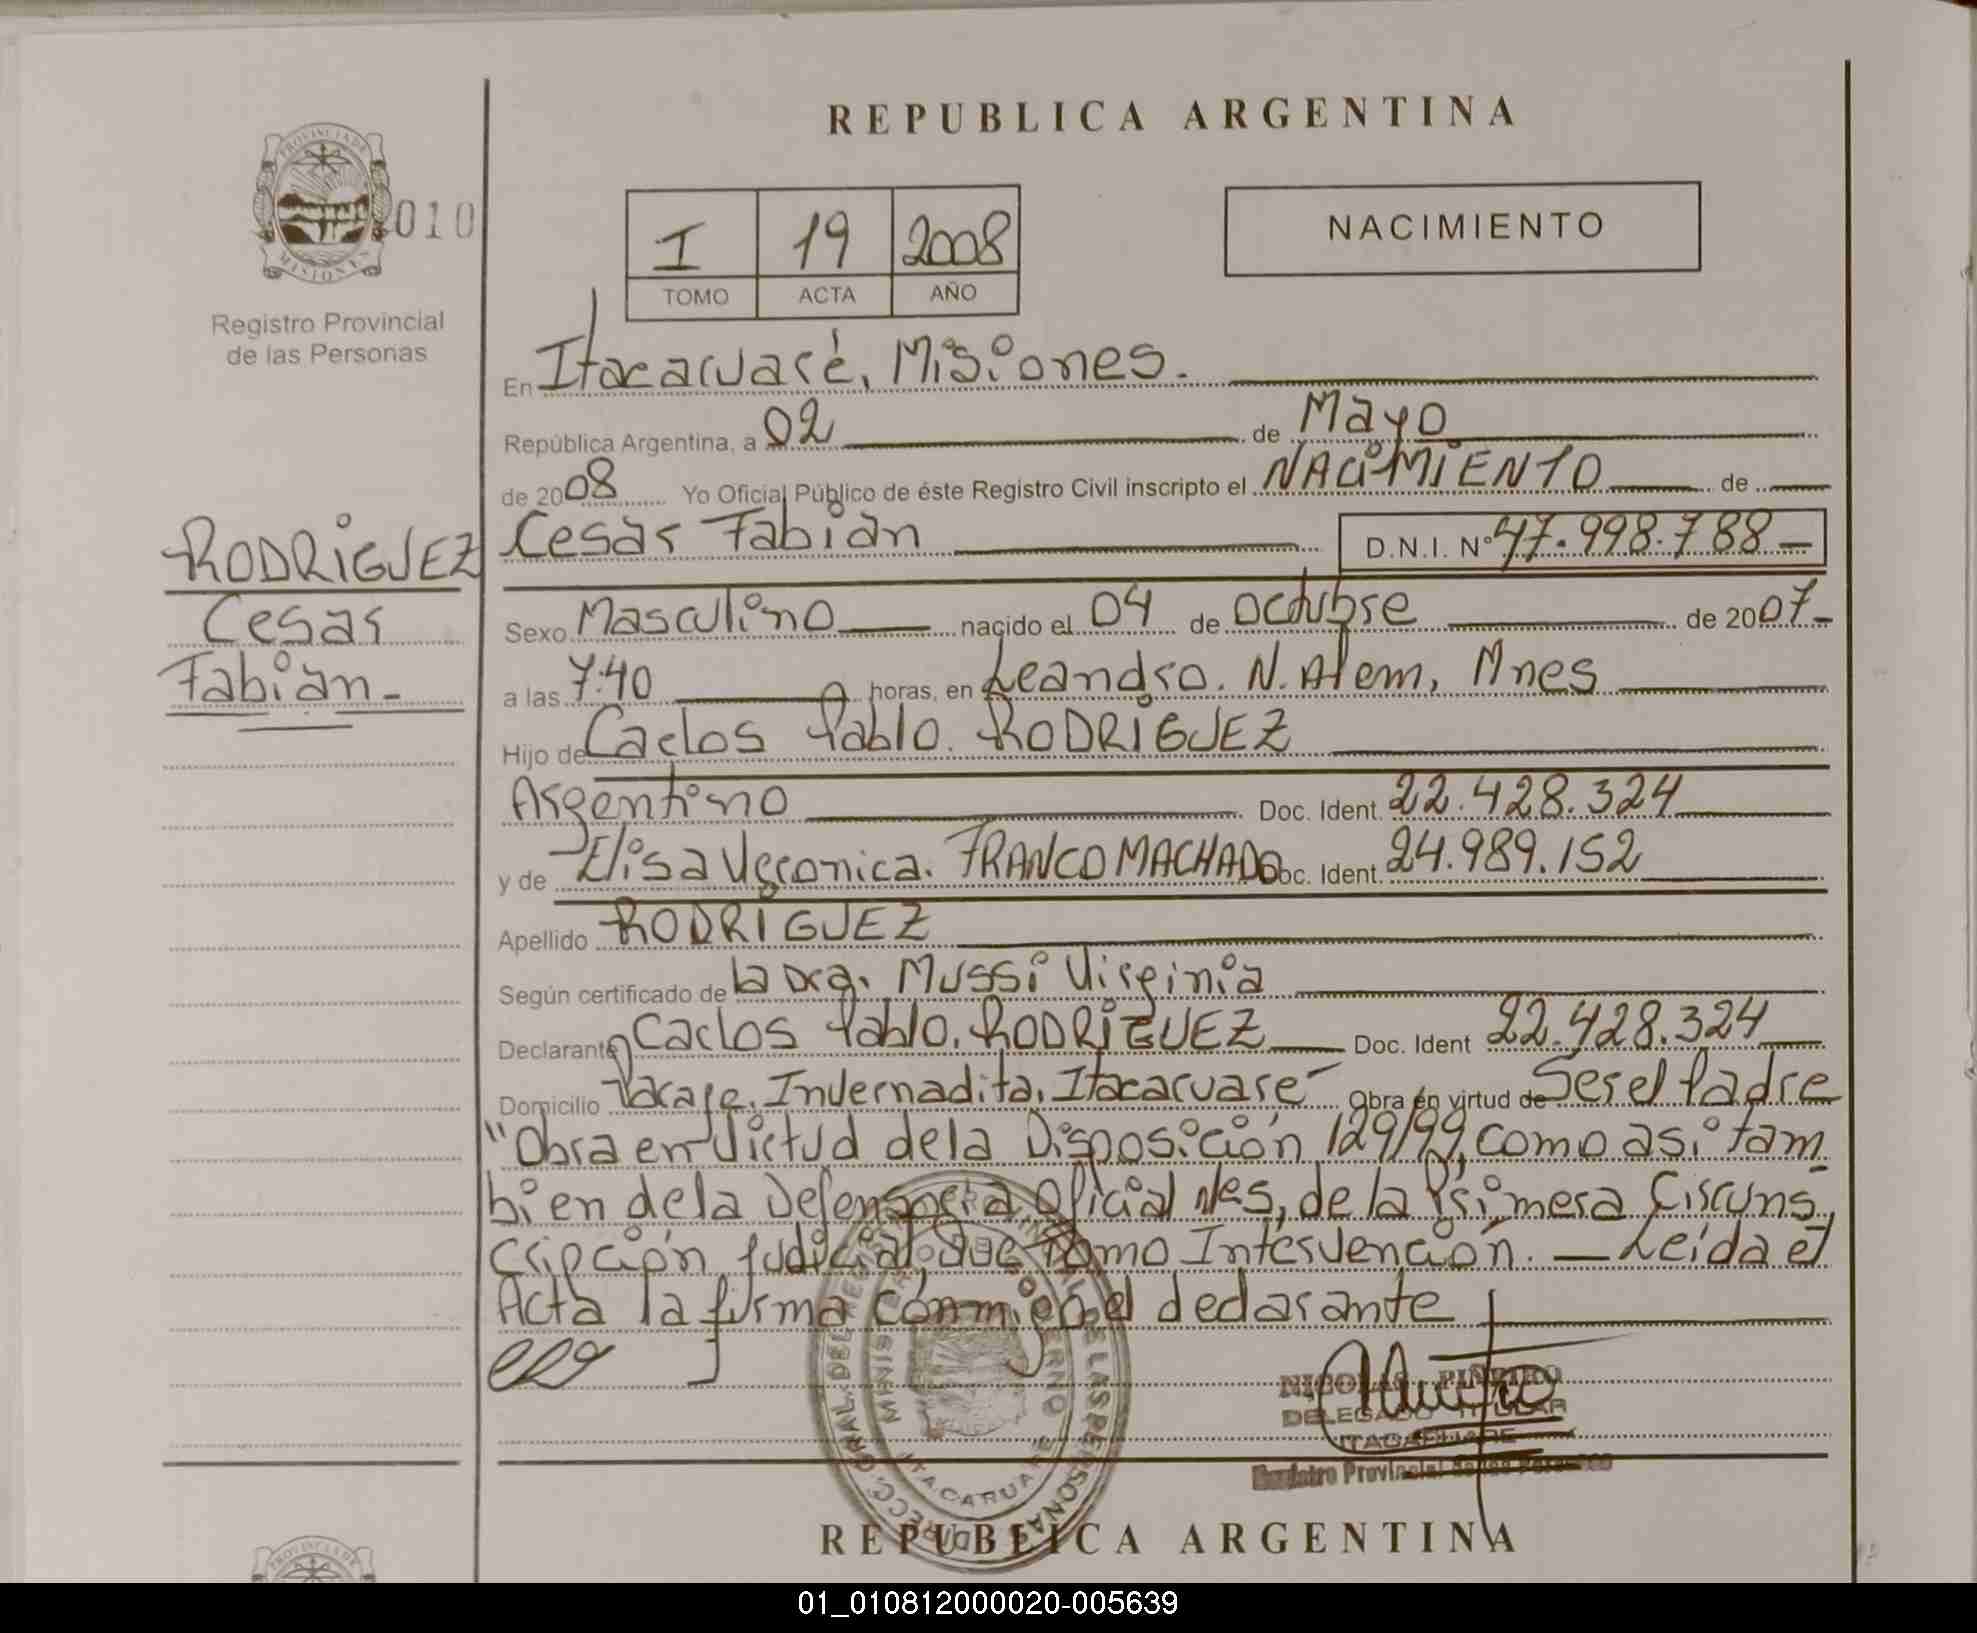 REPUBLICA ARGENTINA
PROVINCIA DE MISIONES
010
Registro Provincial
de las Personas
I 19 2008
TOMO ACTA AÑO
NACIMIENTO
En Itacaruaré, Misiones.
República Argentina, a 02 de Mayo
de 2008 Yo Oficial Público de éste Registro Civil inscripto el NACIMIENTO de
RODRIGUEZ
Cesar
Fabián
Cesar Fabián D.N.I. N° 47.998.788
Sexo Masculino nacido el 04 de Octubre de 2007
a las 7:40 horas, en Leandro. N. Alem, Mnes
Hijo de Carlos Pablo. RODRIGUEZ
Argentino Doc. Ident. 22.428.324
y de Elisa Veronica. FRANCO MACHADO Doc. Ident. 24.989.152
Apellido RODRIGUEZ
Según certificado de la Dra. Mussi Virginia
Declarante Carlos Pablo. RODRIGUEZ Doc. Ident 22.428.324
Domicilio Invernadita. Itacaruare Obra en virtud de Ser el Padre
"Obra en virtud de la Disposición 129/99, como asi tam
bien de la Defensoria Oficial de la Primera Circuns
cripción Judicial, que tomo Intervención. — Leida el
Acta la firma conmigo el declarante
NICOLAS PIÑEIRO
DELEGADO TITULAR
ITACARUARE
Registro Provincial de las Personas
DIRECC. GRAL. DEL REGISTRO PROV. DE LAS PERSONAS
MINISTERIO DE GOBIERNO
ITACARUARE
REPUBLICA ARGENTINA
PROVINCIA DE
01_010812000020-005639